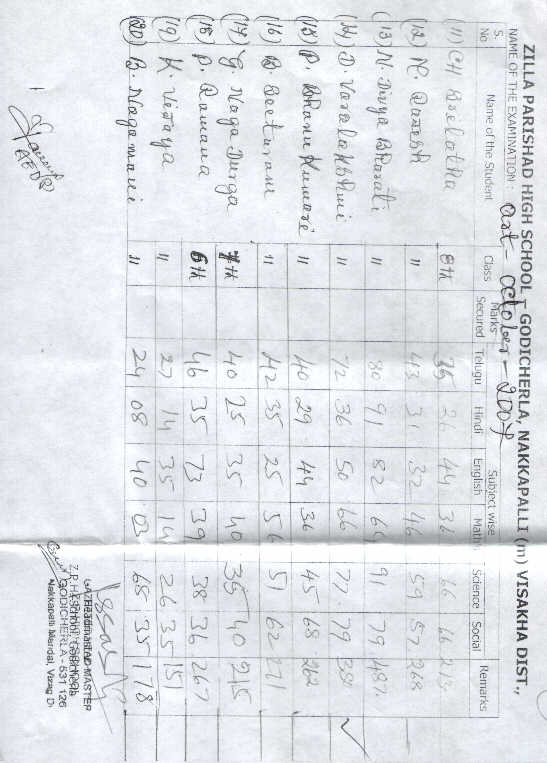 ZILLA PARISHAD HIGH SCHOOL - GODICHERLA, NAKKAPALLI (m) VISAKHA DIST.,
NAME OF THE EXAMINATION: - October - 2007
S. No Name of the Student Class Marks Secured Subject wise Remarks
Telugu Hindi English Maths Science Social
(11) CH 8th 35 26 44 36 66 66 273
(12) 11 43 31 32 46 59 57 268
(13) N. Divya Bharati 11 80 91 82 64 91 79 487
(14) D. Varalakshmi 11 72 36 50 66 77 79
(15) P. Bhanu Kumari 11 40 29 44 36 45 68 262
(16) B. Seeturam 11 42 35 25 56 51 62 271
(17) G. Naga Durga 7th 40 25 35 40 35 40 215
(18) P. Ramana 6th 46 35 73 39 38 36 267
(19) K. Vejaya 11 27 14 35 14 26 35 151
(20) B. Nagamani 11 24 08 40 03 68 35 178
GODICHERLA - 531 126
Nakkapalli Mandal, Vizag D